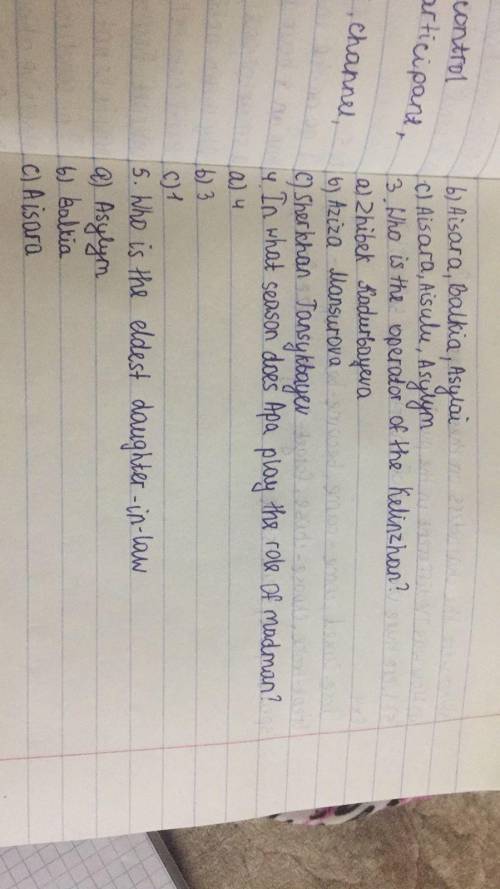 control
articipant,
, channel,
b) Aisara, Balkia, Asylai
c) Aisara, Aisulu, Asylym
3. Who is the operator of the Kelinzhan?
a) Zhibek Kadurbayeva
b) Aziza Mansurova
c) Sherkhan Tansykbayev
4. In what season does Apa play the role of madman?
a) 4
b) 3
c) 1
5. Who is the eldest daughter-in-law
a) Asylym
b) Balkia
c) Aisara